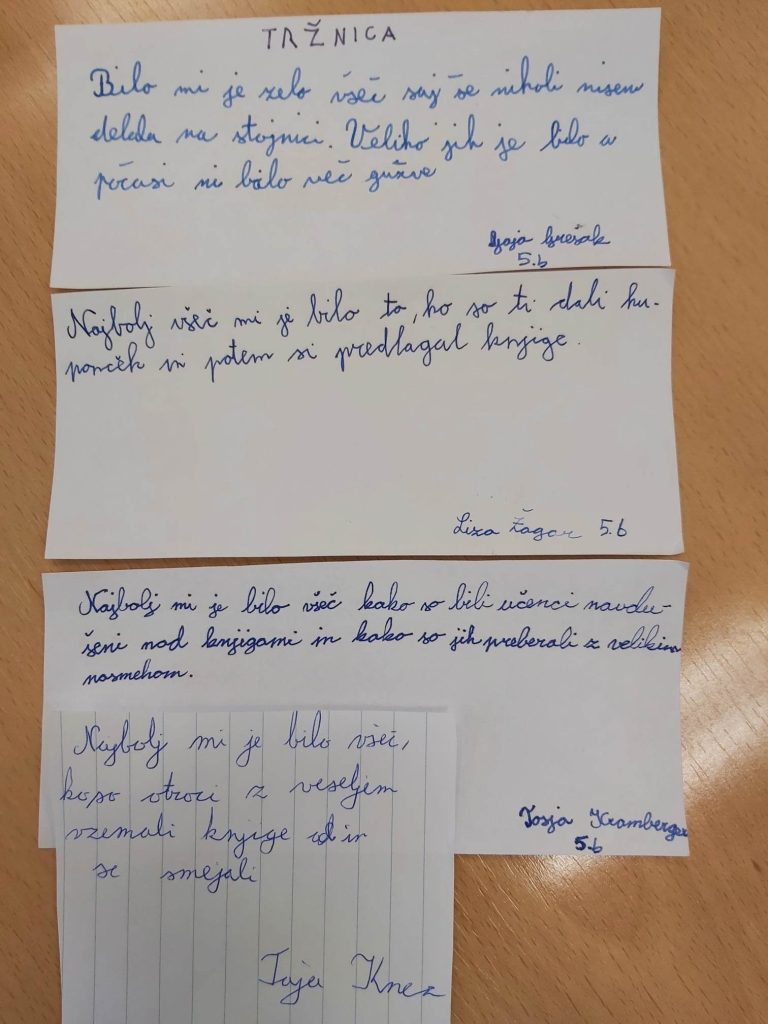 TRŽNICA
Bilo mi je zelo všeč saj še nikoli nisem
delala na stojnici. Veliko jih je bilo a
počasi ni bilo več gužve
Gaja Grešak
5.b
Najbolj všeč mi je bilo to, ko so ti dali ku-
ponček in potem si predlagal knjige.
Liza Žagar 5.b
Najbolj mi je bilo všeč kako so bili učenci navdu-
šeni nad knjigami in kako so jih preberali z velikim
nasmehom.
Tosja Kramberger
5.b
Najbolj mi je bilo všeč,
koso otroci z veseljem
vzemali knjige in
se smejali
Taja Knez